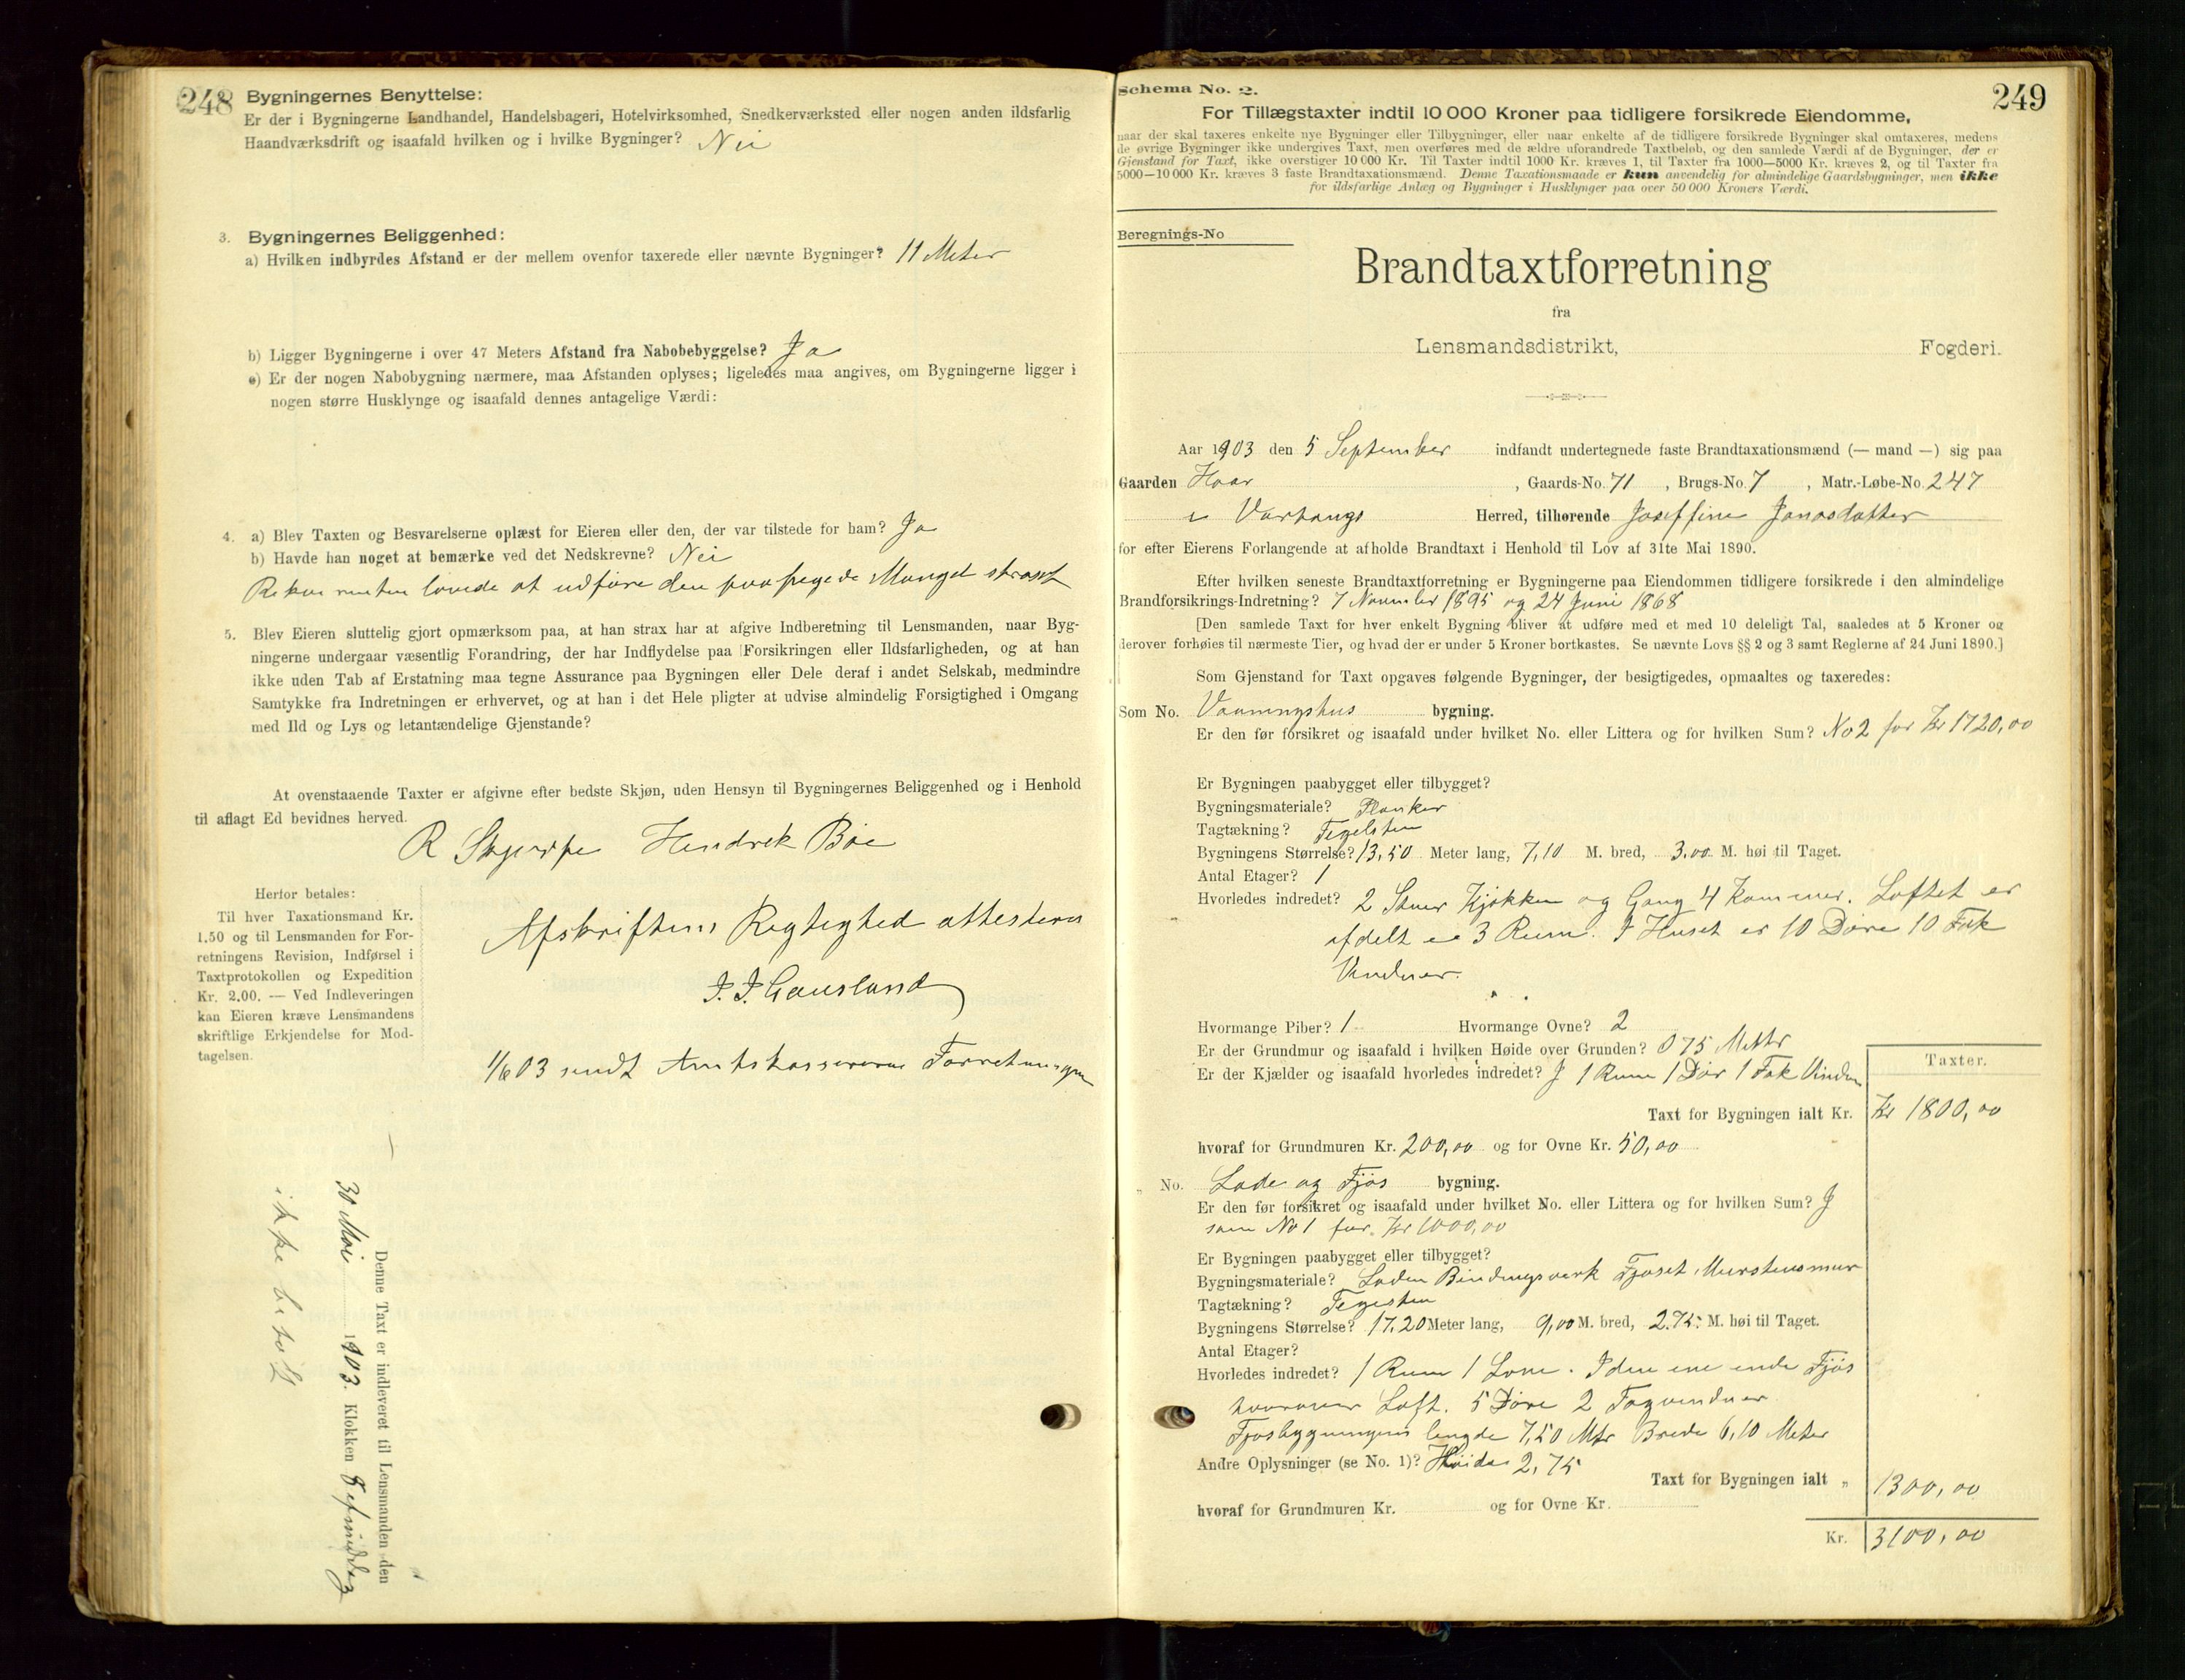 248
Bygningernes Benyttelse:
Er der i Bygningerne Landhandel, Handelsbageri, Hotelvirksomhed, Snedkerværksted eller nogen anden ildsfarlig
Haandværksdrift og isaafald hvilken og i hvilke Bygninger? Nei
3. Bygningernes Beliggenhed:
a) Hvilken indbyrdes Afstand er der mellem ovenfor taxerede eller nævnte Bygninger? 11 Meter
b) Ligger Bygningerne i over 47 Meters Afstand fra Nabobebyggelse? Ja
c) Er der nogen Nabobygning nærmere, maa Afstanden oplyses; ligeledes maa angives, om Bygningerne ligger i
nogen større Husklynge og isaafald dennes antagelige Værdi:
4. a) Blev Taxten og Besvarelserne oplæst for Eieren eller den, der var tilstede for ham? Ja
b) Havde han noget at bemærke ved det Nedskrevne? Nei
Rekvirenten lovede at udføre den paapegede Mangel straxt
5. Blev Eieren sluttelig gjort opmærksom paa, at han strax har at afgive Indberetning til Lensmanden, naar Byg-
ningerne undergaar væsentlig Forandring, der har Indflydelse paa Forsikringen eller Ildsfarligheden, og at han
ikke uden Tab af Erstatning maa tegne Assurance paa Bygningen eller Dele deraf i andet Selskab, medmindre
Samtykke fra Indretningen er erhvervet, og at han i det Hele pligter at udvise almindelig Forsigtighed i Omgang
med Ild og Lys og letantændelige Gjenstande?
At ovenstaaende Taxter er afgivne efter bedste Skjøn, uden Hensyn til Bygningernes Beliggenhed og i Henhold
til aflagt Ed bevidnes herved.
R Skjerpe Hendrek Bøe
Herfor betales:
Til hver Taxationsmand Kr.
1.50 og til Lensmanden for For-
retningens Revision, Indførsel i
Taxtprotokollen og Expedition
Kr. 2.00. — Ved Indleveringen
kan Eieren kræve Lensmandens
skriftlige Erkjendelse for Mod-
tagelsen.
Afskriftens Rigtighed attesteres
J. J. Gausland
1/6 03 sendt Amtskassereren Forretningen
Denne Taxt er indleveret til Lensmanden den
30 Mai 1903. Klokken 8 efmiddag
ikke betalt
249
Schema No. 2.
For Tillægstaxter indtil 10 000 Kroner paa tidligere forsikrede Eiendomme,
naar der skal taxeres enkelte nye Bygninger eller Tilbygninger, eller naar enkelte af de tidligere forsikrede Bygninger skal omtaxeres, medens
de øvrige Bygninger ikke undergives Taxt, men overføres med de ældre uforandrede Taxtbeløb, og den samlede Værdi af de Bygninger, der er
Gjenstand for Taxt, ikke overstiger 10 000 Kr. Til Taxter indtil 1000 Kr. kræves 1, til Taxter fra 1000—5000 Kr. kræves 2, og til Taxter fra
5000—10 000 Kr. kræves 3 faste Brandtaxationsmænd. Denne Taxationsmaade er kun anvendelig for almindelige Gaardsbygninger, men ikke
for ildsfarlige Anlæg og Bygninger i Husklynger paa over 50 000 Kroners Værdi.
Beregnings-No
Brandtaxtforretning
fra
Lensmandsdistrikt, Fogderi.
Aar 1903 den 5 September indfandt undertegnede faste Brandtaxationsmænd (— mand —) sig paa
Gaarden Haar, Gaards-No. 71, Brugs-No. 7, Matr.-Løbe-No. 247
i Varhaugs Herred, tilhørende Joseffine Jonasdatter
for efter Eierens Forlangende at afholde Brandtaxt i Henhold til Lov af 31te Mai 1890.
Efter hvilken seneste Brandtaxtforretning er Bygningerne paa Eiendommen tidligere forsikrede i den almindelige
Brandforsikrings-Indretning? 7 November 1895 og 24 Juni 1868
[Den samlede Taxt for hver enkelt Bygning bliver at udføre med et med 10 deleligt Tal, saaledes at 5 Kroner og
derover forhøies til nærmeste Tier, og hvad der er under 5 Kroner bortkastes. Se nævnte Lovs §§ 2 og 3 samt Reglerne af 24 Juni 1890.]
Som Gjenstand for Taxt opgaves følgende Bygninger, der besigtigedes, opmaaltes og taxeredes:
Som No. Vaaningshus bygning.
Er den før forsikret og isaafald under hvilket No. eller Littera og for hvilken Sum? No 2 for Kr 1720,00
Er Bygningen paabygget eller tilbygget?
Bygningsmateriale? Planker
Tagtækning? Tegelsten
Bygningens Størrelse? 13,50 Meter lang, 7,10 M. bred, 3,00 M. høi til Taget.
Antal Etager? 1
Hvorledes indredet? 2 Stuer Kjøkken og Gang 4 Kammer. Loftet er
afdelt i 3 Rum. I Huset er 10 Døre 10 Fak
Vinduer.
Hvormange Piber? 1 Hvormange Ovne? 2
Er der Grundmur og isaafald i hvilken Høide over Grunden? 0 75 Metr
Er der Kjælder og isaafald hvorledes indredet? J 1 Rum 1 Dør 1 Fak Vindu
Taxter.
Taxt for Bygningen ialt Kr. Kr 1800,00
hvoraf for Grundmuren Kr. 200,00 og for Ovne Kr. 50,00
„ No. Lade og Fjøs bygning.
Er den før forsikret og isaafald under hvilket No. eller Littera og for hvilken Sum? J
som No 1 for Kr 1000,00
Er Bygningen paabygget eller tilbygget?
Bygningsmateriale? Laden Bindingsverk Fjøset Murstensmur
Tagtækning? Tegesten
Bygningens Størrelse? 17,20 Meter lang, 9,00 M. bred, 2.75 M. høi til Taget.
Antal Etager?
Hvorledes indredet? 1 Rum 1 Love. I den ene ende Fjøs
hvorover Loft. 5 Døre 2 Fagvinduer
Fjøsbygningens lengde 7,50 Mtr Brede 6,10 Meter
Andre Oplysninger (se No. 1)? Høide 2,75
Taxt for Bygningen ialt „ 1300,00
hvoraf for Grundmuren Kr. og for Ovne Kr.
Kr. 3100,00